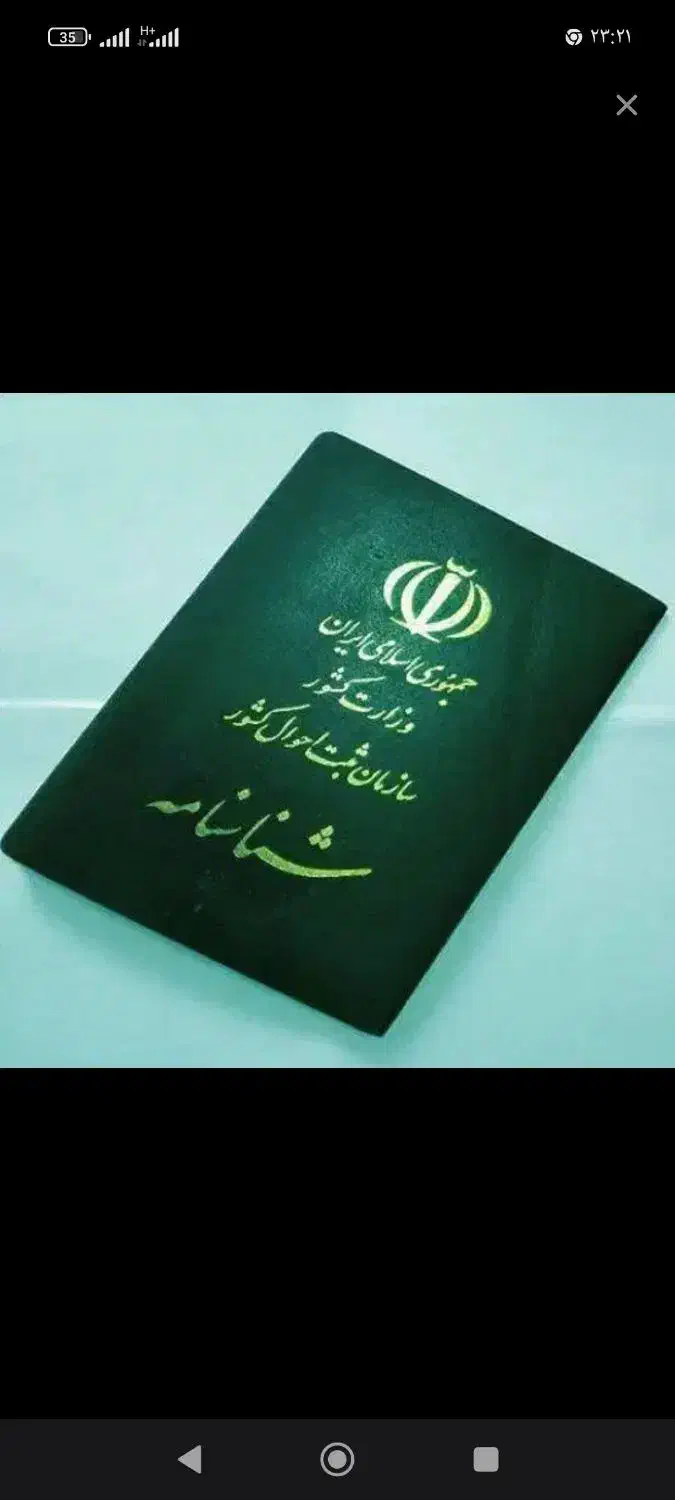 35
H+
۲۳:۲۱
جمهوری اسلامی ایران
وزارت کشور
سازمان ثبت احوال کشور
شناسنامه